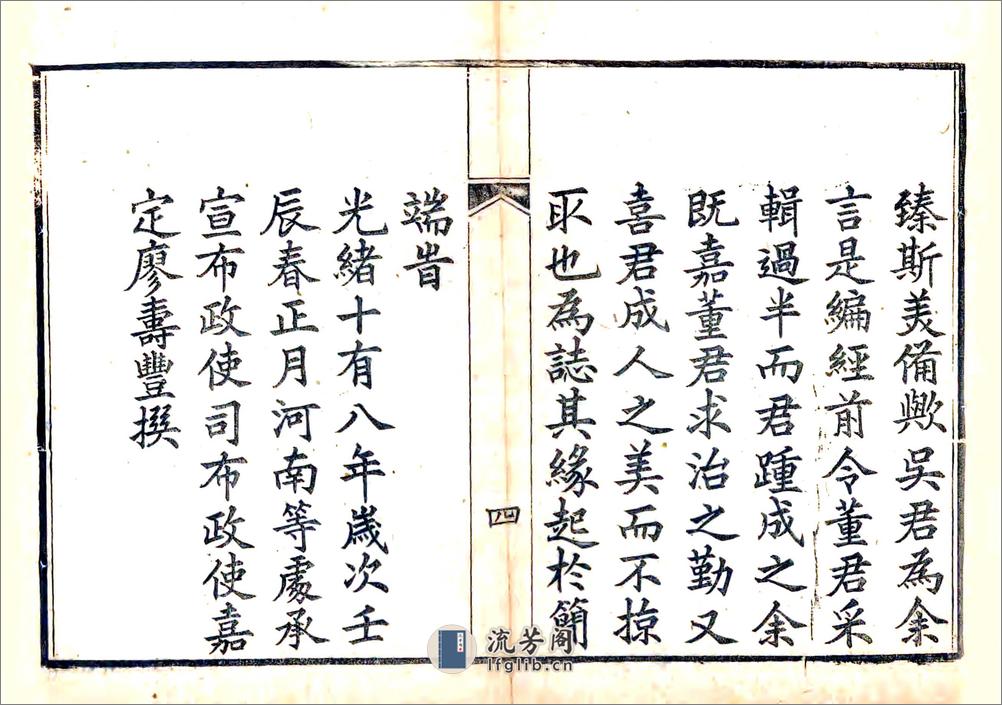 臻斯美備歟吳君為余
言是編經前令董君采
輯過半而君踵成之余
既嘉董君求治之勤又
喜君成人之美而不掠
取也為誌其緣起於簡
四
端旹
光緒十有八年歲次壬
辰春正月河南等處承
宣布政使司布政使嘉
定廖壽豐撰
流芳阁
lfglib.cn